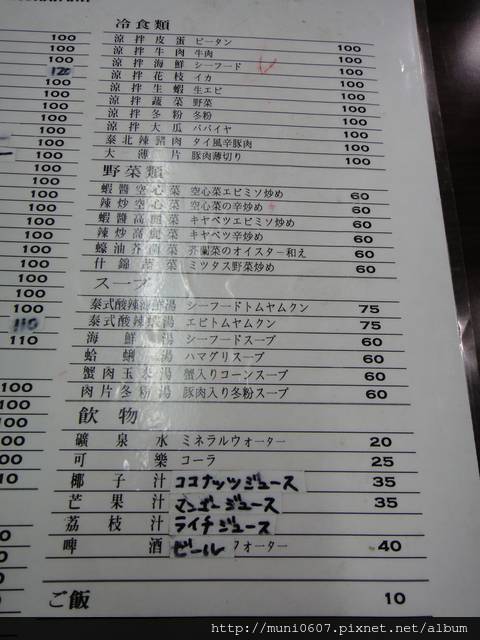 冷食類
涼拌皮蛋 ピータン 100
涼拌牛肉 牛肉 100
涼拌海鮮 シーフード 100
涼拌花枝 イカ 100
涼拌生蝦 生エビ 100
涼拌蔬菜 野菜 100
涼拌冬粉 冬粉 100
涼拌大瓜 パパイヤ 100
泰北辣豬肉 タイ風辛豚肉 100
大薄片 豚肉薄切り 100
野菜類
蝦醬空心菜 空心菜エビミソ炒め 60
辣炒空心菜 空心菜の辛炒め 60
蝦醬高麗菜 キャベツエビミソ炒め 60
辣炒高麗菜 キャベツ辛炒め 60
蠔油芥蘭菜 芥蘭菜のオイスター和え 60
什錦蔬菜 ミツタス野菜炒め 60
スープ
泰式酸辣海鮮湯 シーフードトムヤムクン 75
泰式酸辣蝦湯 エビトムヤムクン 75
海鮮湯 シーフードスープ 60
蛤蜊湯 ハマグリスープ 60
蟹肉玉米湯 蟹入りコーンスープ 60
肉片冬粉湯 豚肉入り冬粉スープ 60
飲物
礦泉水 ミネラルウォーター 20
可樂 コーラ 25
椰子汁 ココナッツジュース 35
芒果汁 マンゴージュース 35
荔枝汁 ライチジュース
啤酒 ビール フォーター 40
ご飯 10
100
120
100
100
100
100
100
100
100
100
100
100
100
110
110
http://muni0607.pixnet.net/album